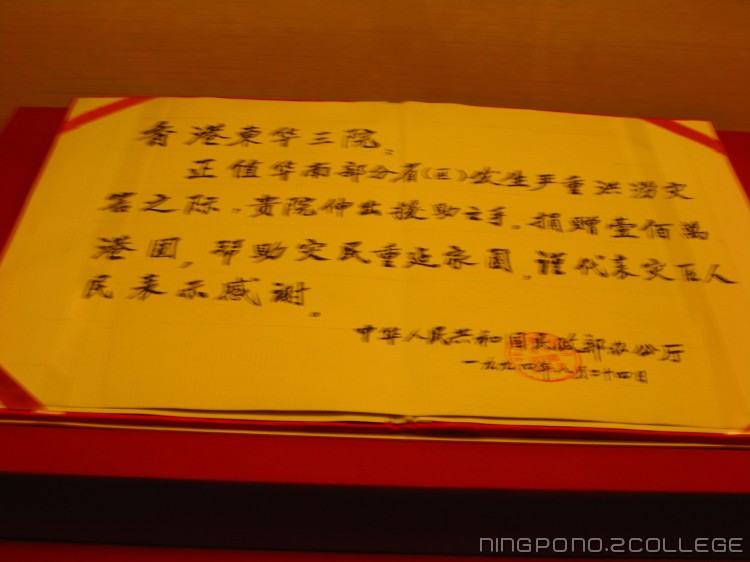 香港東华三院。
正值华南部分省(区)发生严重洪涝灾
害之际,贵院伸出援助之手,捐赠壹佰萬
港圆,帮助灾民重建家园,谨代表灾区人
民表示感谢。
中华人民共和国民政部办公厅
一九九四年八月二十四日
NINGPONO.2COLLEGE